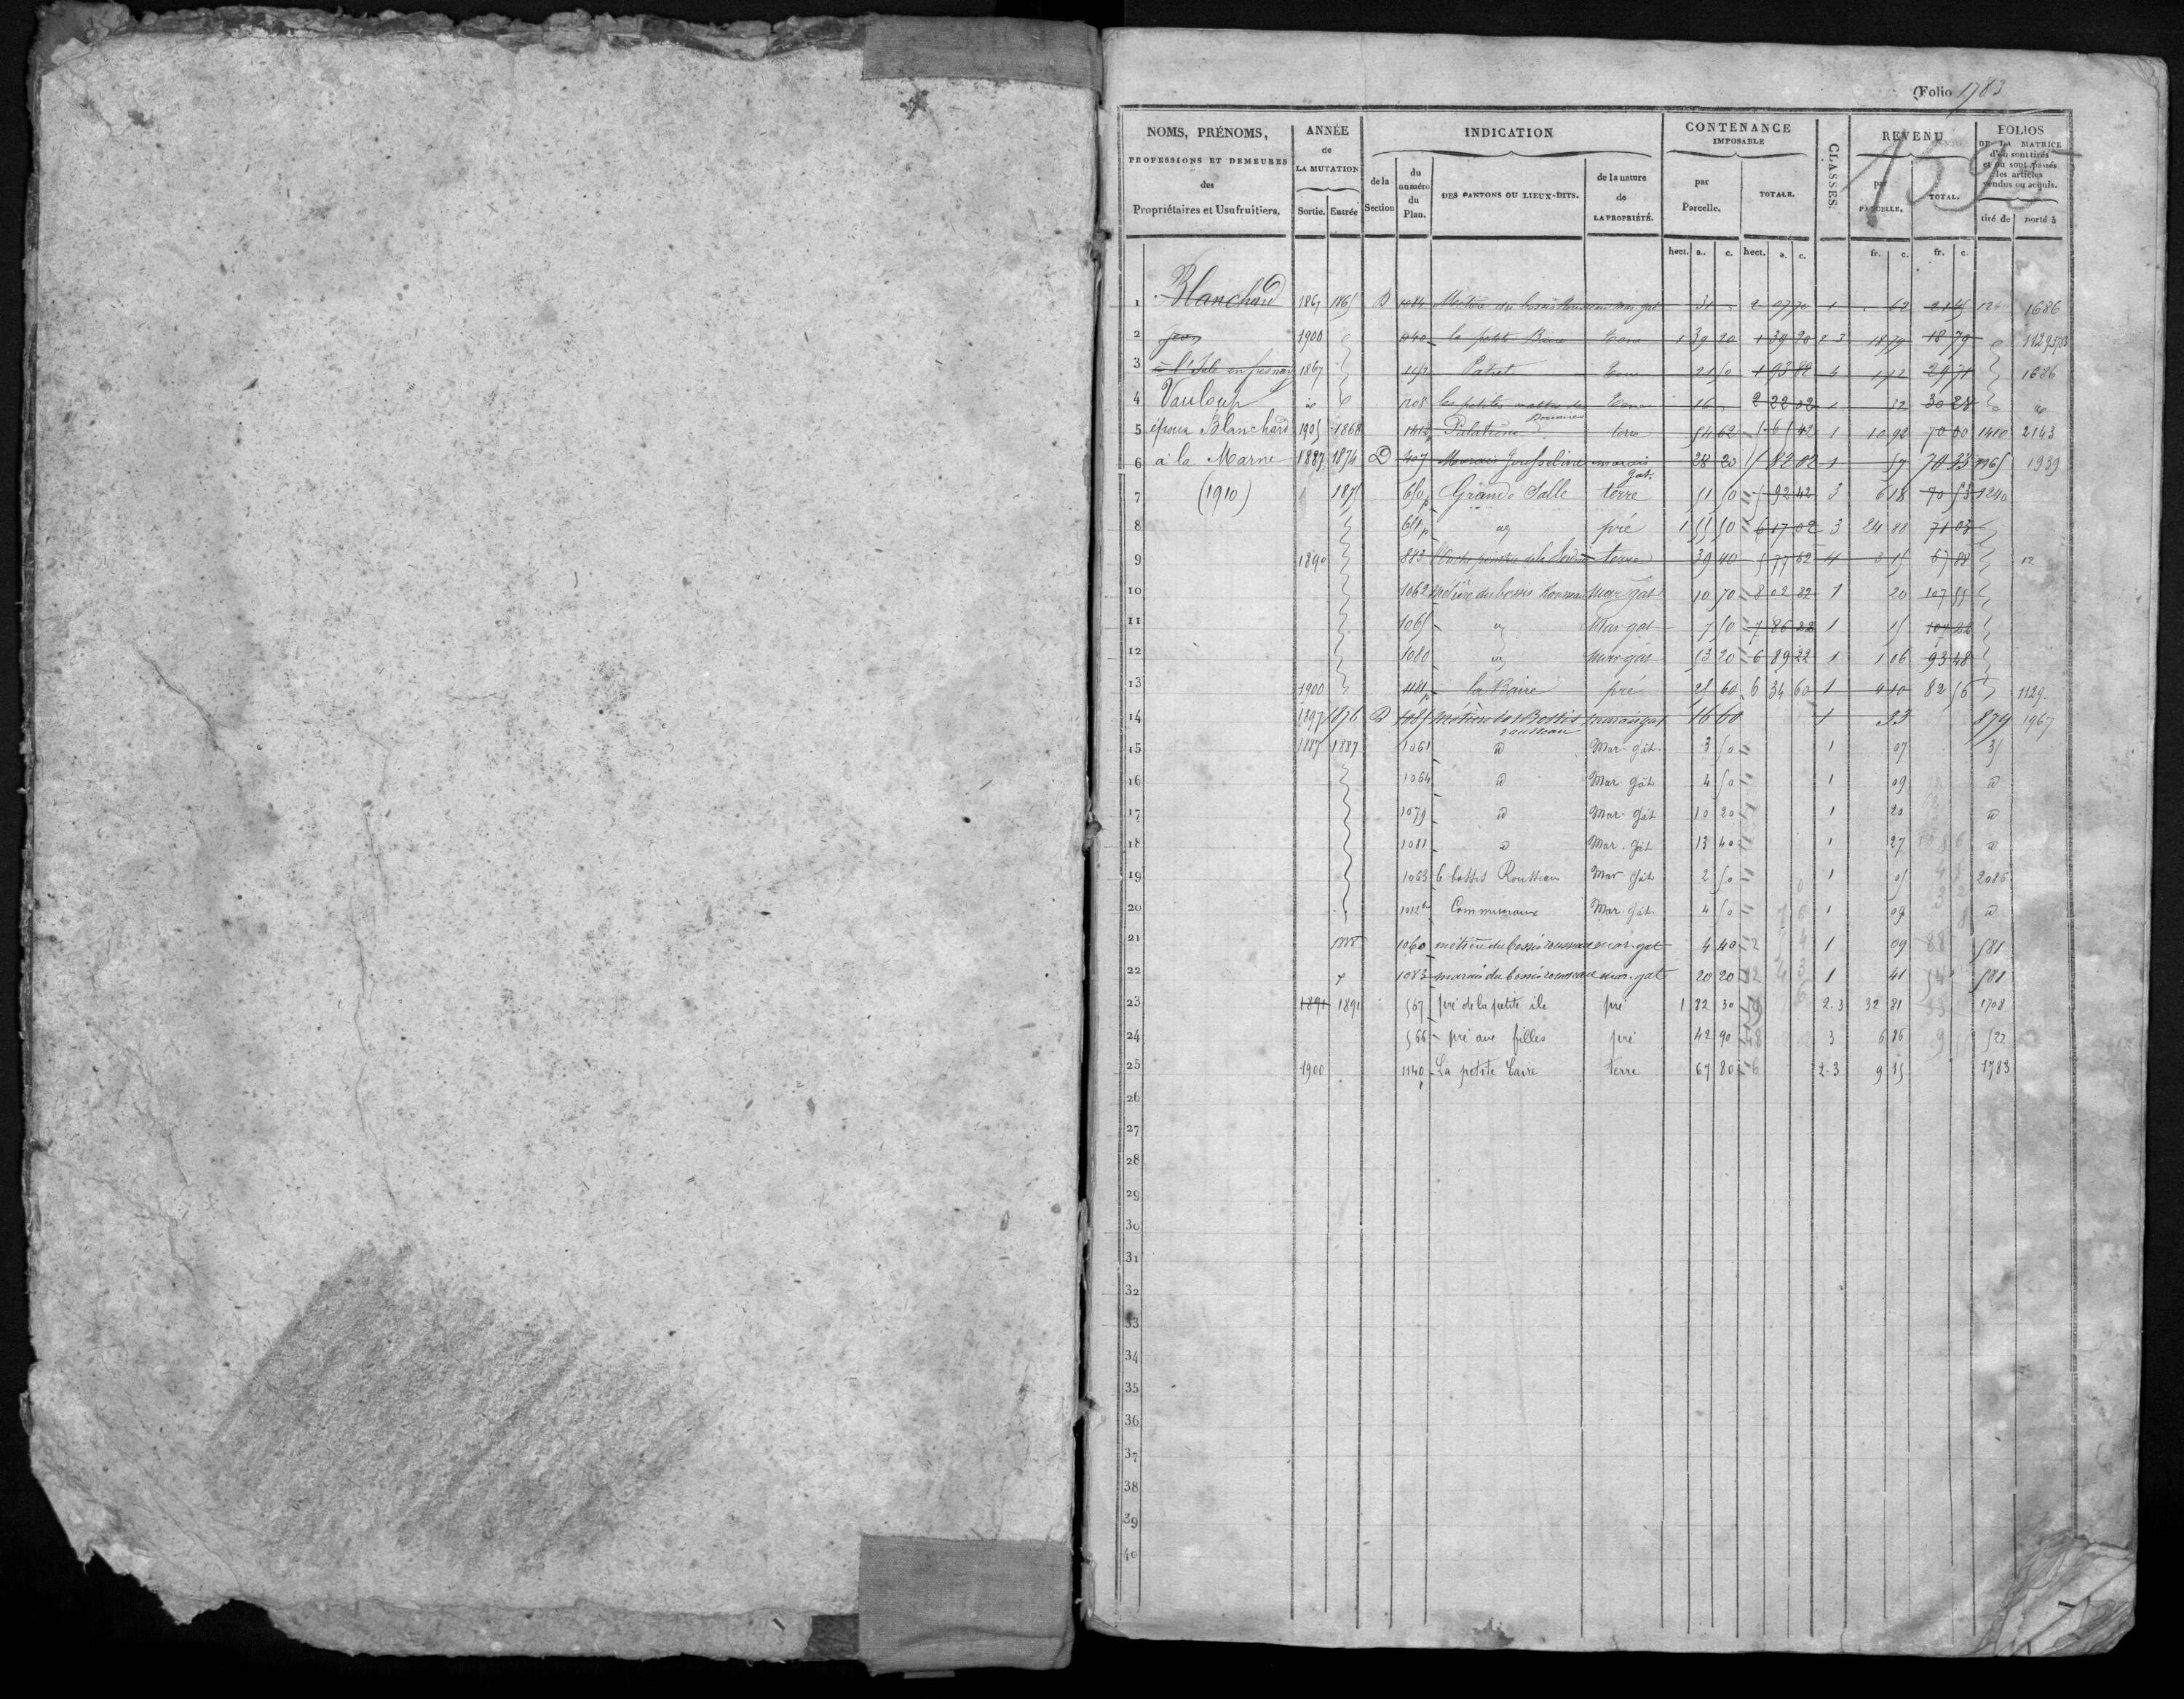 Folio 1783
NOMS, PRÉNOMS, PROFESSIONS ET DEMEURES des Propriétaires et Usufruitiers.
ANNÉE de LA MUTATION Sortie. Entrée
INDICATION de la Section du numéro du Plan. DES CANTONS OU LIEUX-DITS. de la nature de LA PROPRIÉTÉ.
CONTENANCE IMPOSABLE par Parcelle. TOTALE.
CLASSES.
REVENU par PARCELLE. TOTAL.
FOLIOS DE LA MATRICE d'où sont tirés et où sont passés les articles vendus ou acquis. tiré de porté à
hect. a. c. hect. a. c. fr. c. fr. c.
1 Blanchard 1867 1865 D 1084 31 2 07 70 1 62 1686
2 Jean 1900 1140 la petite Baire terre 1 39 20 1 39 20 2-3 18 79 18 79
3 1867 Patret terre 21 50 1 93 82 29 71 1686
4 Vauloup 1208 les petites terre 16 2 22 02 1 32 30 28
5 époux Blanchard 1905 1868 1412 terre 54 62 5 65 42 1 10 92 70 00 1410 2143
6 à la Marne 1887 1874 D 407 Marais Jousseline marais gat. 28 20 5 82 02 1 57 70 33 1165 1939
7 (1910) 1875 650 p Grande Salle terre 51 50 5 92 42 3 6 18 70 53 1240
8 651 p pré 1 55 50 6 17 02 3 24 88 71 03
9 1890 883 terre 39 40 5 77 62 4 3 15 67 88
10 1062 métière du bossis Rousseau Mar gat 10 70 8 02 82 1 20 107 55
11 1065 Mar gat 7 50 7 86 22 1 15 104 22
12 1080 Mar gat 53 20 6 89 22 1 1 06 93 48
13 1900 1141 la Baire pré 25 60 6 34 60 1 4 10 82 56 1129
14 1897 1876 D 1085 métière des Bossis rousseau marais gat 16 60 1 33 879 1967
15 1887 1887 1061 d Mar. gât. 3 50 1 07 35
16 1064 d Mar. gât 4 50 1 09 d
17 1079 d Mar. gât 10 20 1 20 d
18 1081 d Mar. gât 13 40 1 27 d
19 1063 le bossis Rousseau Mar gât 2 50 1 05 2086
20 1012 Communaux Mar. gât. 4 50 1 09 d
21 1060 métière du bossis rousseau mar. gat 4 40 1 09 581
22 1083 marais du bossis rousseau mar. gat 20 20 1 41 581
23 1891 1891 567 pré de la petite ile pré 1 82 30 2.3 32 81 1708
24 566 pré aux filles pré 42 90 3 6 86 522
25 1900 1140 p La petite baire terre 67 80 2-3 9 15 1783
26
27
28
29
30
31
32
33
34
35
36
37
38
39
40